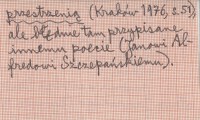 przestrzenią (Kraków 1976, s. 51),
ale błędnie tam przypisane
innemu poecie (Janowi Al-
fredowi Szczepańskiemu).